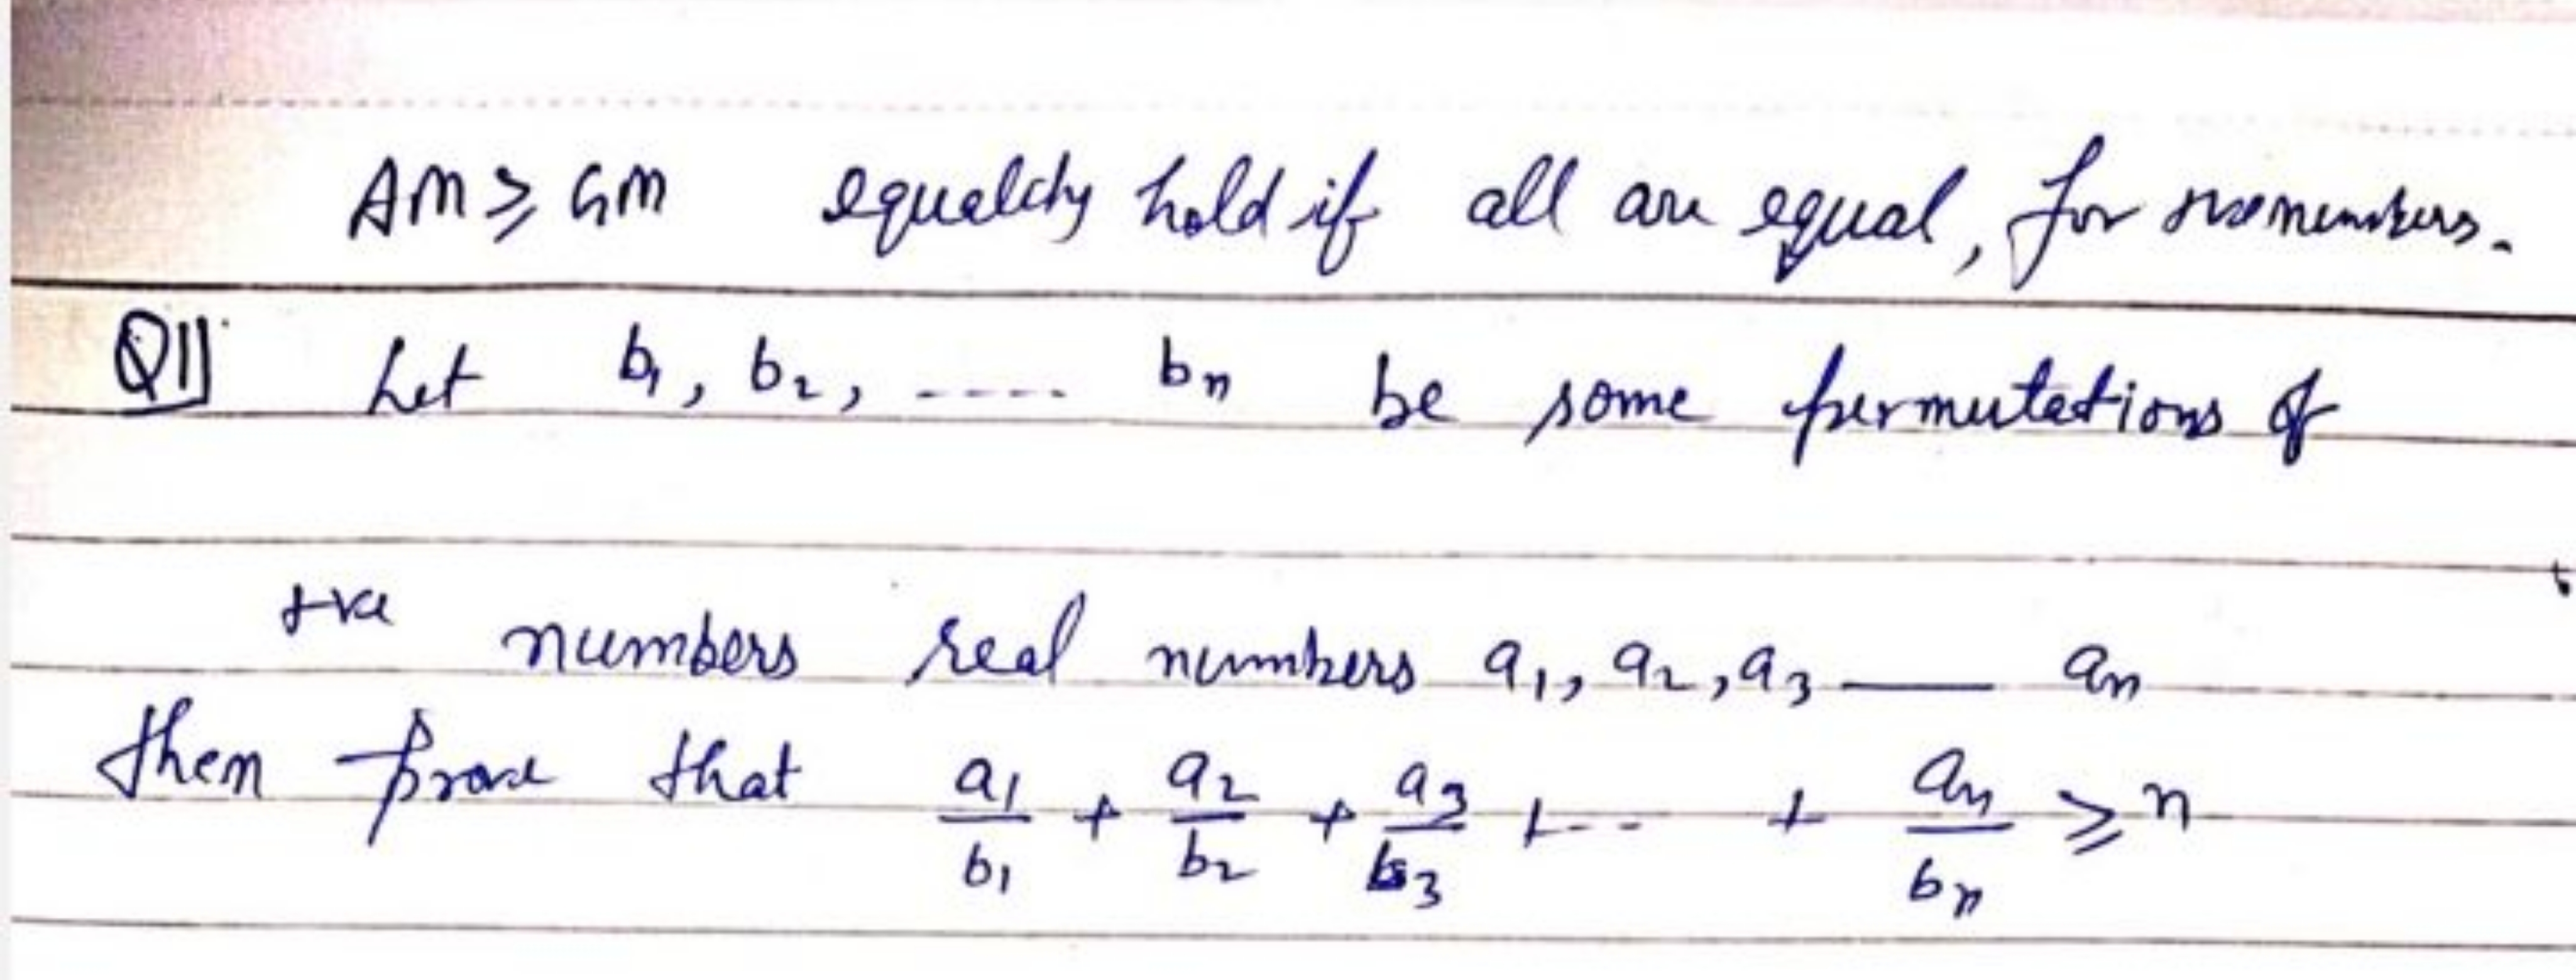 AM ≥ GM equality hold if all are equal, for numbers.
Q11 Let b₁, b₂, ..... bₙ be some permutations of
+ve numbers real numbers a₁, a₂, a₃ — aₙ
then prove that a₁/b₁ + a₂/b₂ + a₃/b₃ + --- + aₙ/bₙ ≥ n